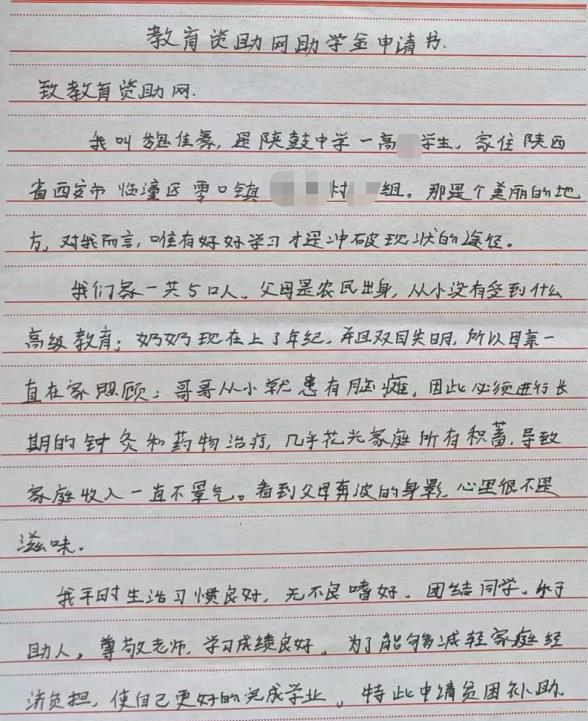 教育资助网助学金申请书.
致教育资助网.
我叫魏佳雾,是陕鼓中学一高学生,家住陕西
省西安市临潼区零口镇村组。那是个美丽的地
方,对我而言,唯有好好学习才是冲破现状的途径。
我们家一共5口人。父母是农民出身,从小没有受到什么
高级教育;奶奶现在上了年纪,并且双目失明,所以母亲一
直在家照顾;哥哥从小就患有脑瘫,因此必须进行长
期的针灸和药物治疗,几乎花光家庭所有积蓄,导致
家庭收入一直不景气。看到父母奔波的身影,心里很不是
滋味.
我平时生活习惯良好,无不良嗜好。团结同学,乐于
助人,尊敬老师,学习成绩良好。为了能够减轻家庭经
济负担,使自己更好的完成学业。特此申请贫困补助